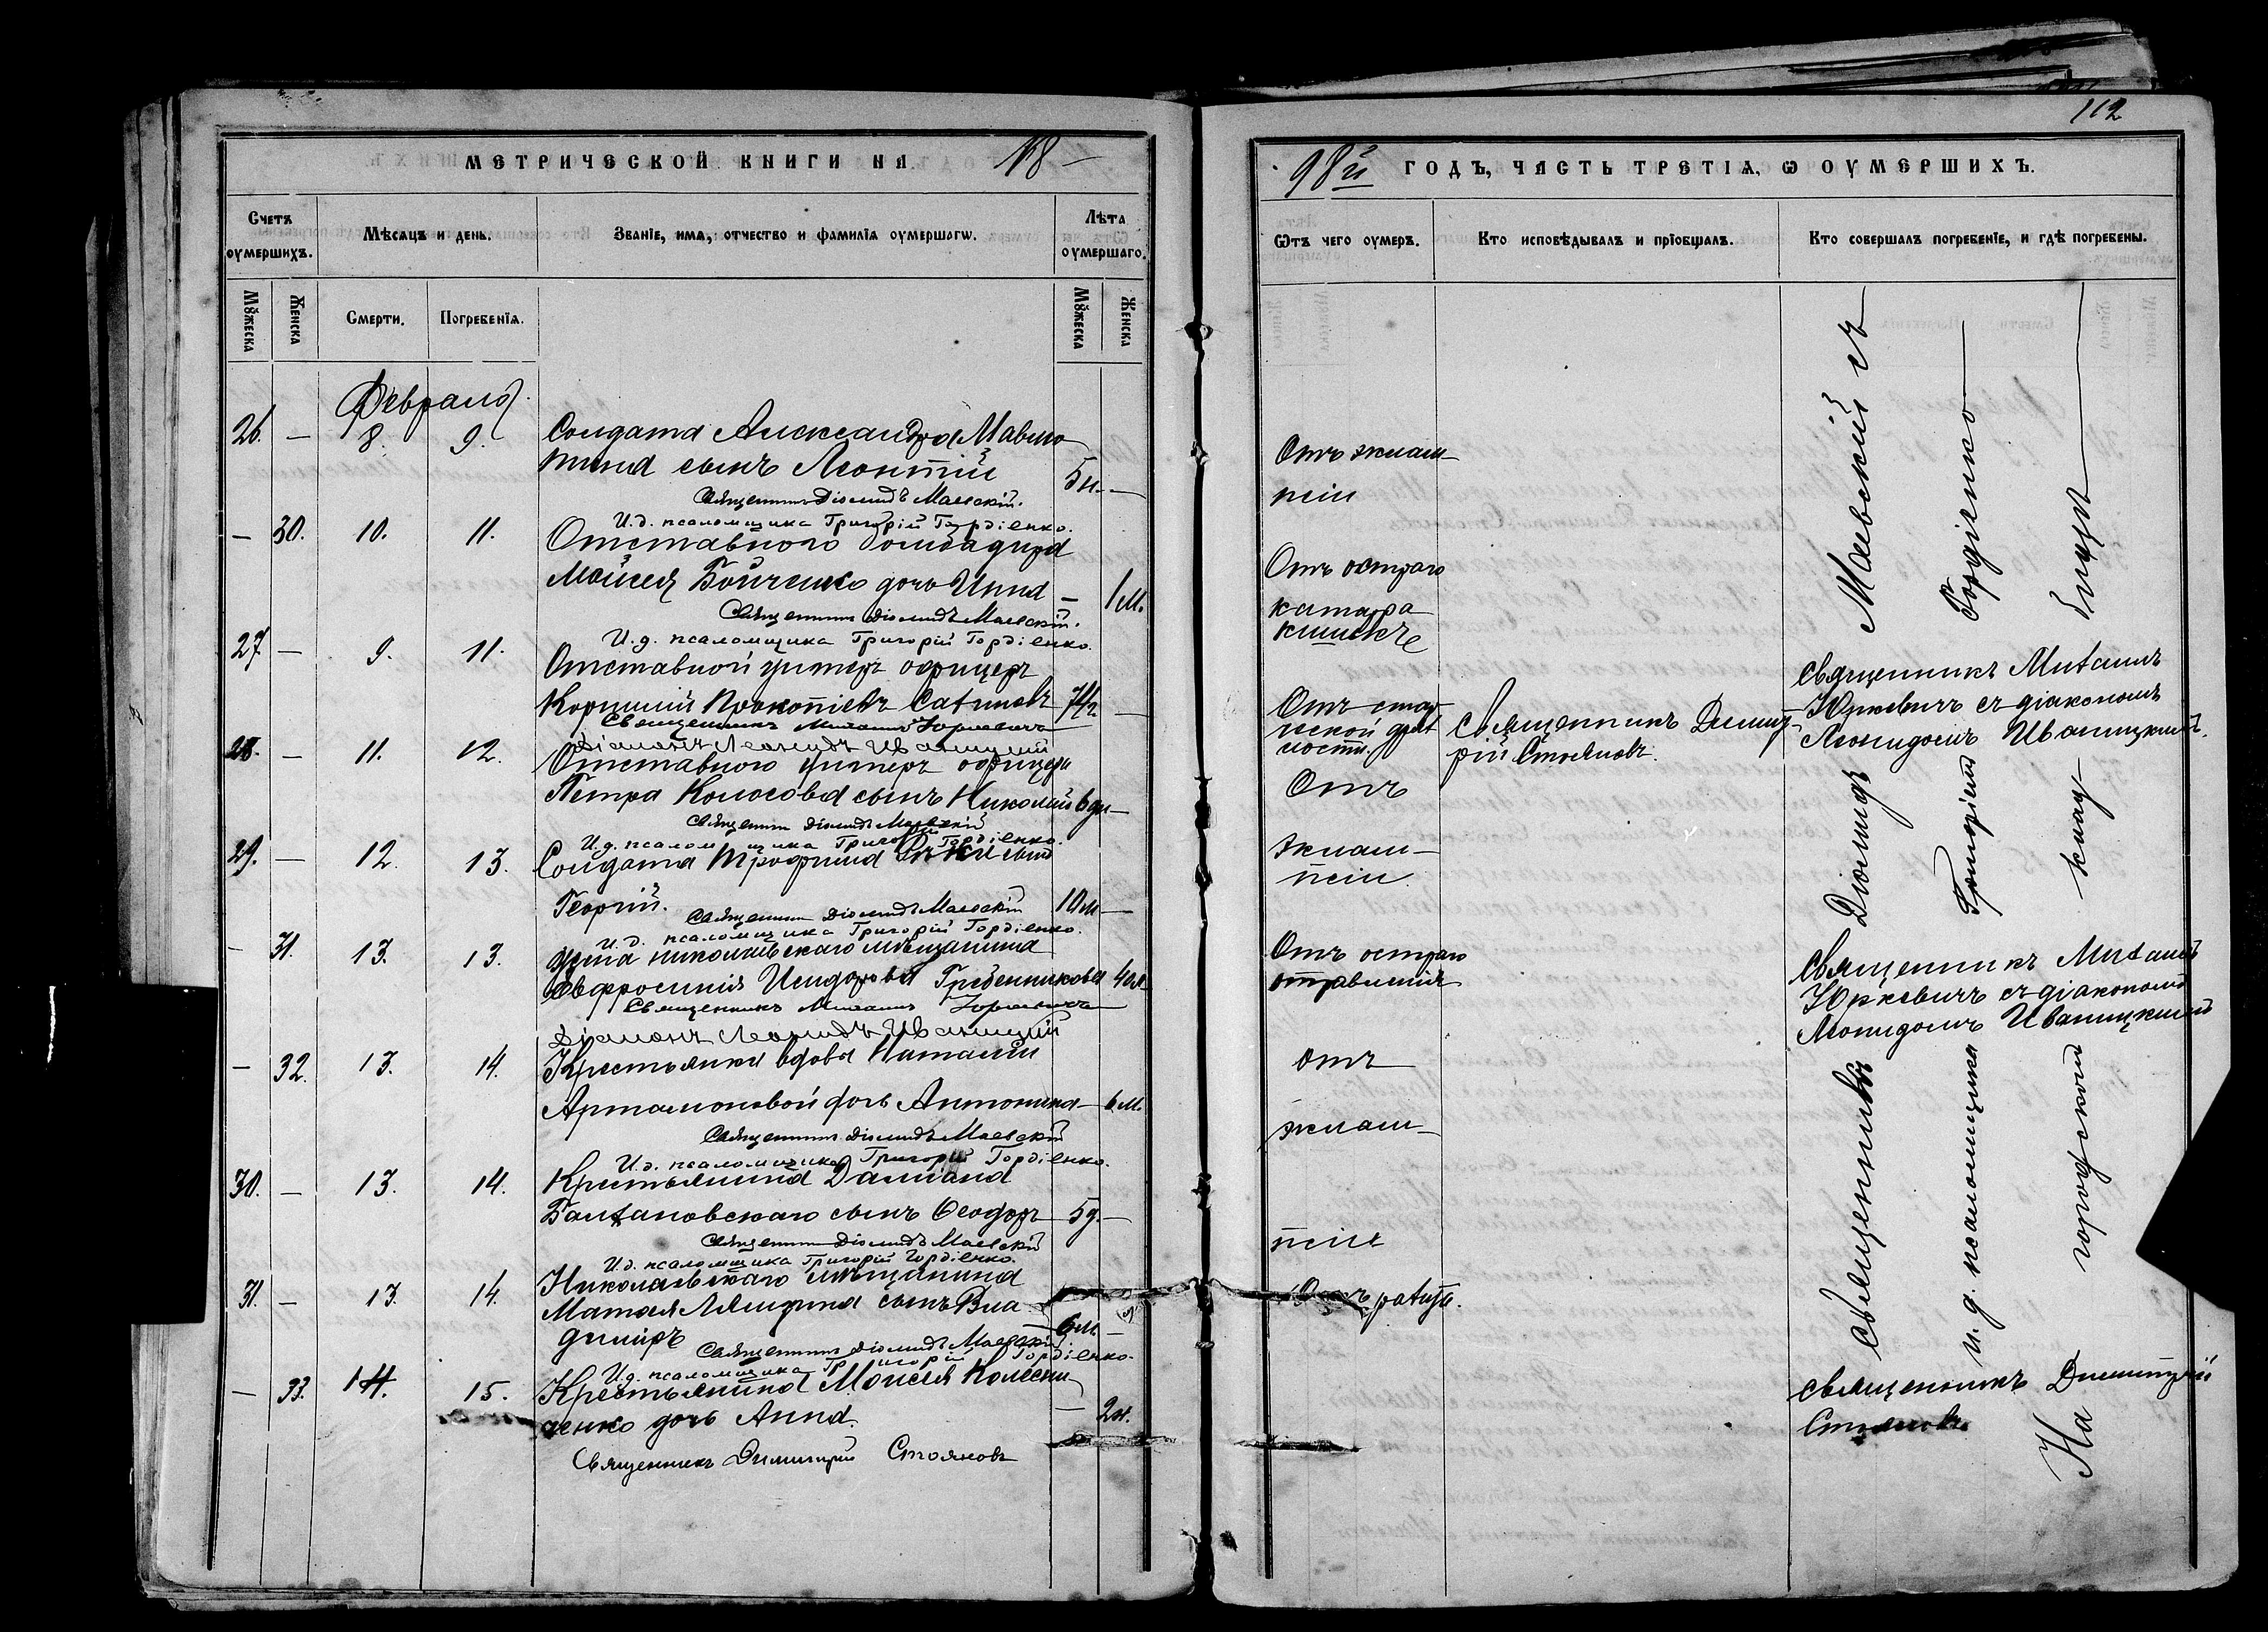 112
МЕТРИЧЕСКОЙ КНИГИ НА 18
98й ГОДЪ, ЧАСТЬ ТРЕТІЯ, Ѡ ОУМЕРШИХЪ.
Счетъ оумершихъ.
Мѣсяцъ и день.
Званіе, имя, отчество и фамилія оумершагѡ.
Лѣта оумершаго.
Ѿтъ чего оумеръ.
Кто исповѣдывалъ и пріобщалъ.
Кто совершалъ погребеніе, и гдѣ погребены.
Мꙋжеска
Женска
Смерти.
Погребенія.
Мꙋжеска
Женска
Февраль
26. — 8. 9. Солдата Александра Мавло
тина сынъ Леонтій 5 н. —
Священникъ Діомидъ Маевскій.
И.д. псаломщика Григорій Гордіенко.
— 30. 10. 11. Отставного бомбадира
Моисея Бойченко дочь Анна — 1 м.
Священникъ Діомидъ Маевскій.
И.д. псаломщика Григорій Гордіенко.
27 — 9. 11. Отставной унтеръ офицеръ
Корнилій Прокопіевъ —
Священникъ Михаилъ Юркевичъ
Діаконъ Леонидъ Иваницкій
28. — 11. 12. Отставного унтеръ офицера
Петра Колосова сынъ Николай 6 дн —
Священникъ Діомидъ Маевскій
И.д. псаломщика Григорій Гордіенко.
29. — 12. 13. Солдата Трофима сынъ
Георгій. 10 м —
Священникъ Діомидъ Маевскій
И.д. псаломщика Григорій Гордіенко.
— 31. 13. 13. Жена николаевскаго мѣщанина
Евфросинія Исидорова Гребенникова 40 л
Священникъ Михаилъ Юркевичъ
Діаконъ Леонидъ Иваницкій
— 32. 13. 14. Крестьянки вдовы Наталіи
Артамоновой дочь Антонина — 6 м.
Священникъ Діомидъ Маевскій
И.д. псаломщика Григорій Гордіенко.
30. — 13. 14. Крестьянина Даміана
Балхановскаго сынъ Ѳеодоръ 5 д. —
Священникъ Діомидъ Маевскій
И.д. псаломщика Григорій Гордіенко.
31. — 13. 14. Николаевскаго мѣщанина
сынъ Вла
диміръ 6 м —
Священникъ Діомидъ Маевскій
И.д. псаломщика Григорій Гордіенко.
— 33. 14. 15. Крестьянина Моисея Колесни
ченко дочь Анна. — 2 н.
Священникъ Димитрій Стояновъ
Отъ эклам—
псіи
Отъ остраго
катарра
кишекъ
Отъ стар
ческой дрях
лости.
Священникъ Димит
рій Стояновъ.
Священникъ Михаилъ
Юркевичъ съ діакономъ
Леонидомъ Иваницкимъ.
Отъ
эклам—
псіи.
Отъ остраго
отравленія
Священникъ Михаилъ
Юркевичъ съ діакономъ
Леонидомъ Иваницкимъ
Отъ
эклам—
псіи
Отъ рахита.
Священникъ Димитрій
Стояновъ
Священникъ Діомидъ Маевскій съ
и. д. псаломщика Григоріемъ Гордіенко —
На городскомъ кладбищѣ —